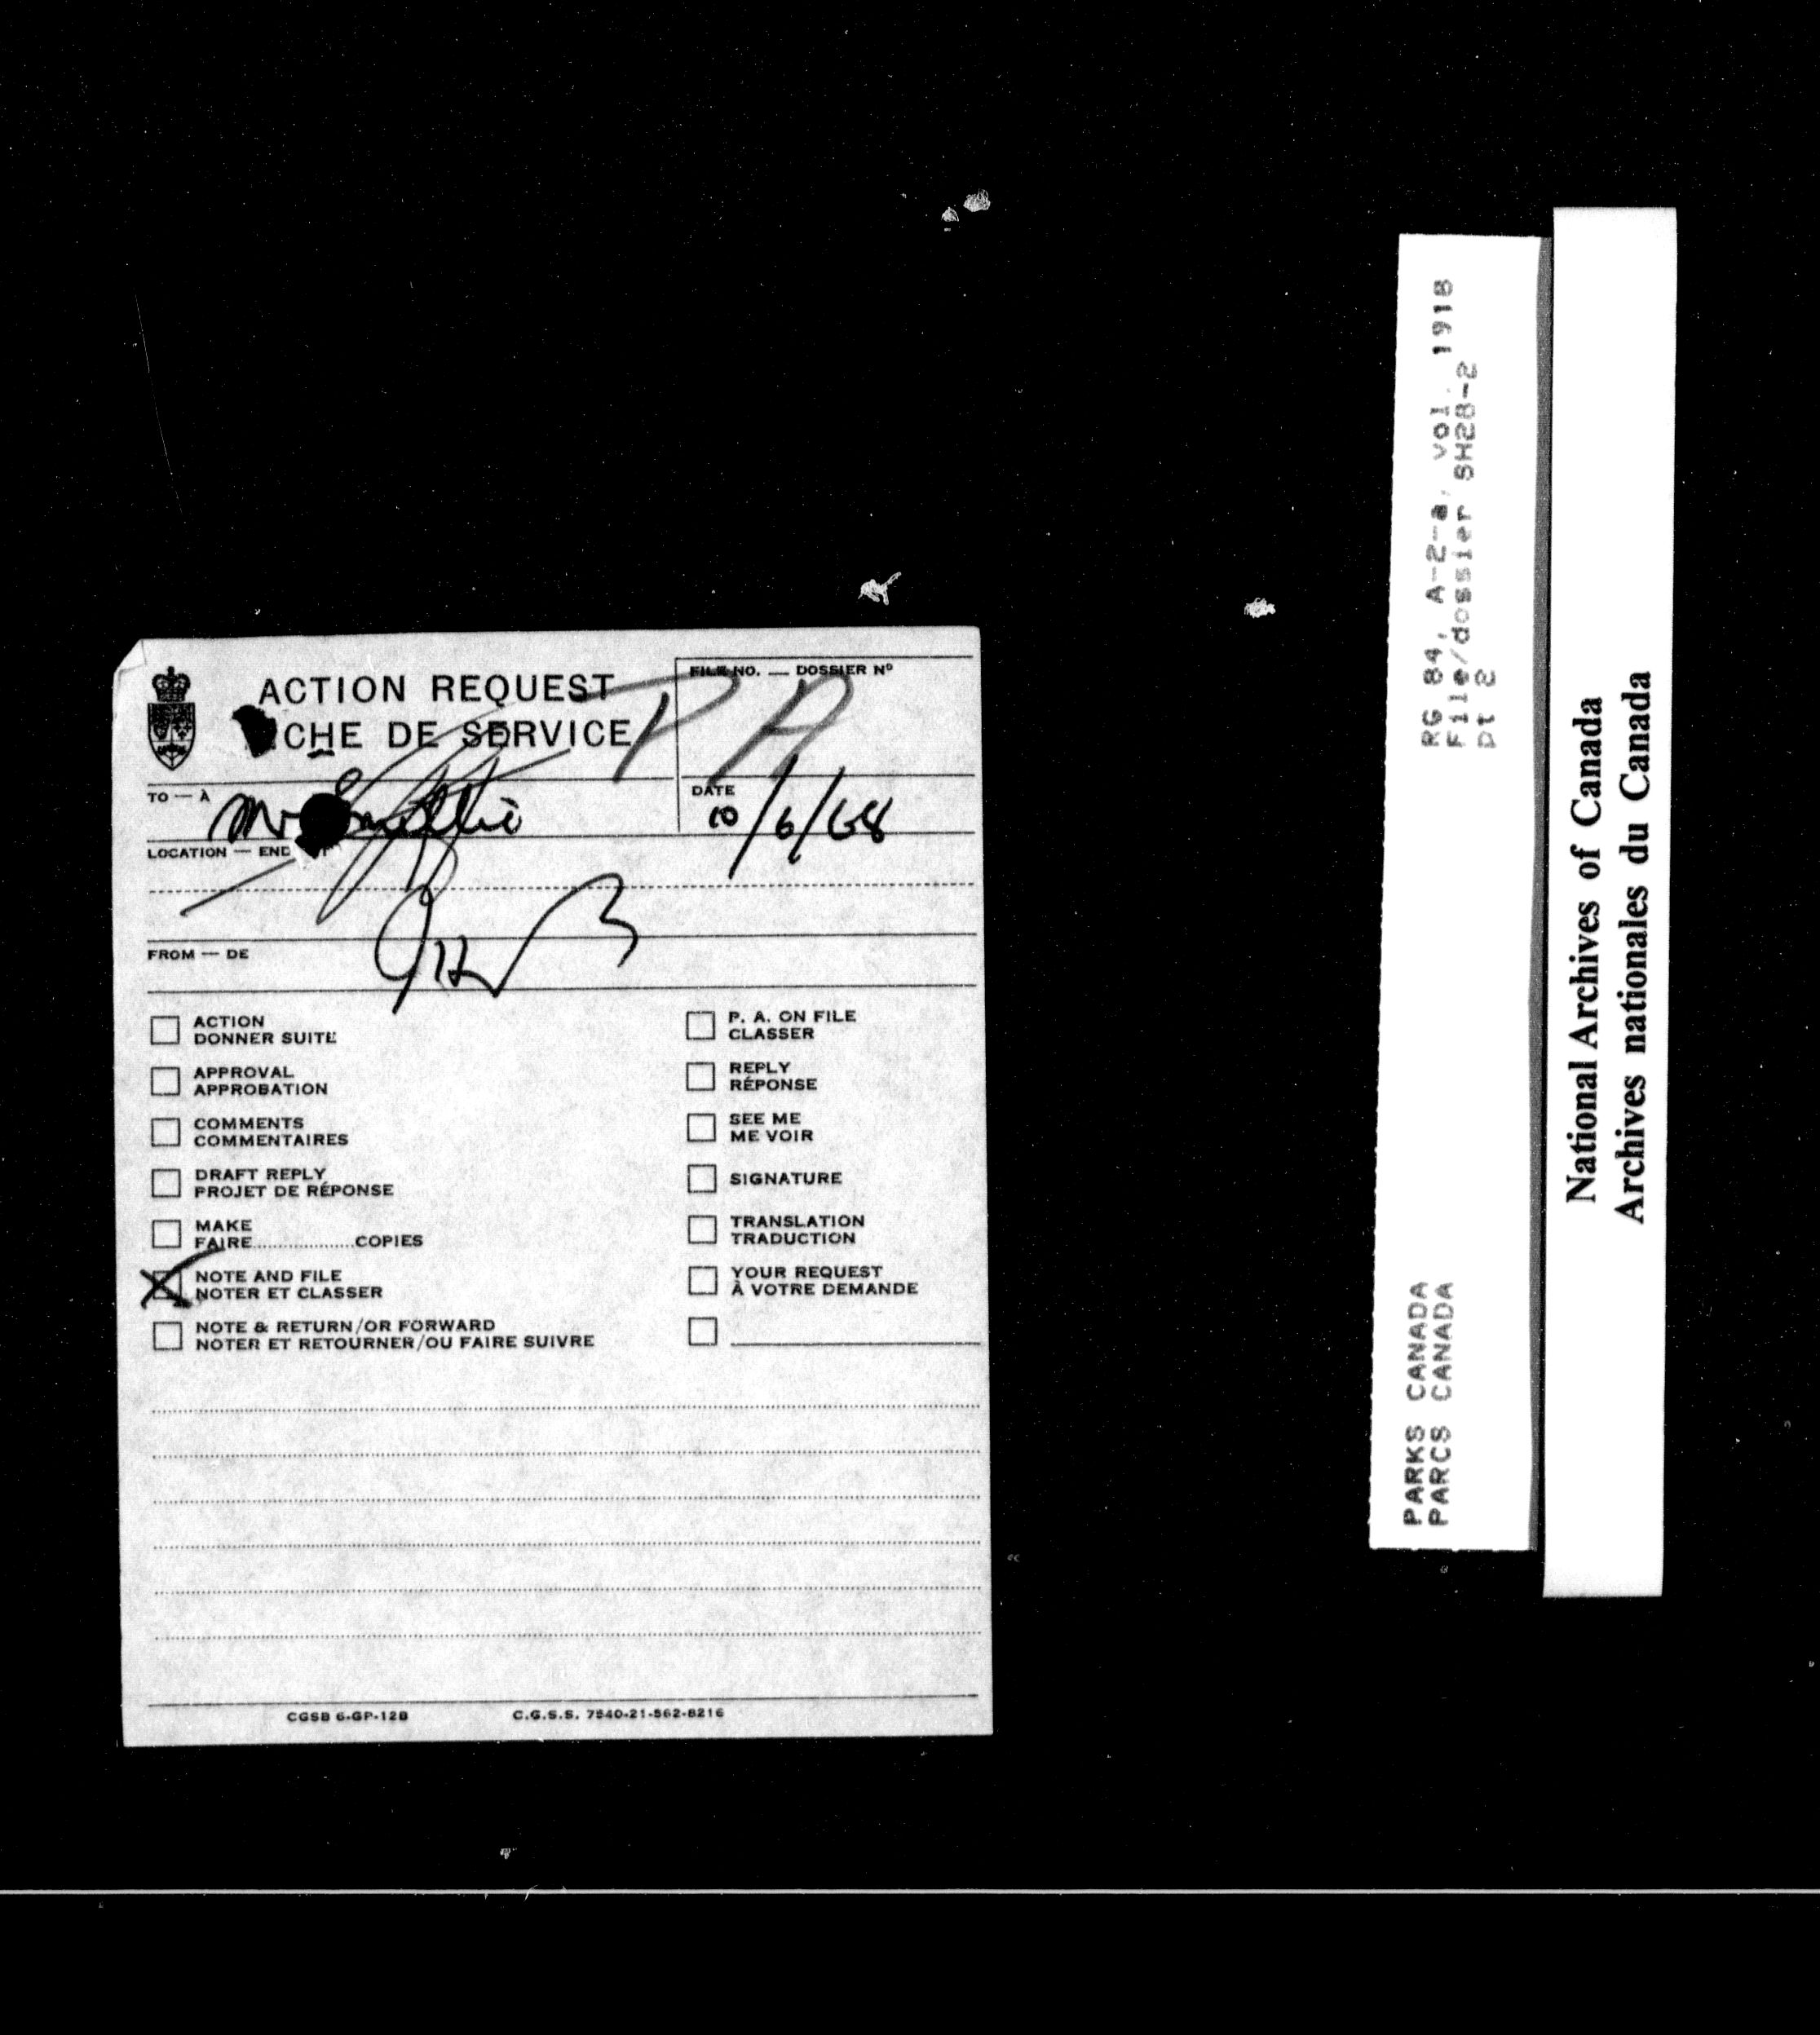 ACTION REQUEST
CHE DE SERVICE
FILE NO. — DOSSIER Nº
PA
TO — À
Mr
DATE
10/6/68
LOCATION — END
FROM — DE
ACTION
DONNER SUITE
APPROVAL
APPROBATION
COMMENTS
COMMENTAIRES
DRAFT REPLY
PROJET DE RÉPONSE
MAKE
FAIRE....................COPIES
NOTE AND FILE
NOTER ET CLASSER
NOTE & RETURN/OR FORWARD
NOTER ET RETOURNER/OU FAIRE SUIVRE
P. A. ON FILE
CLASSER
REPLY
RÉPONSE
SEE ME
ME VOIR
SIGNATURE
TRANSLATION
TRADUCTION
YOUR REQUEST
À VOTRE DEMANDE
CGSB 6-GP-12B
C.G.S.S. 7540-21-562-8216
PARKS CANADA
PARCS CANADA
RG 84, A-2-a, vol. 1918
File/dossier SH28-2
pt 2
National Archives of Canada
Archives nationales du Canada